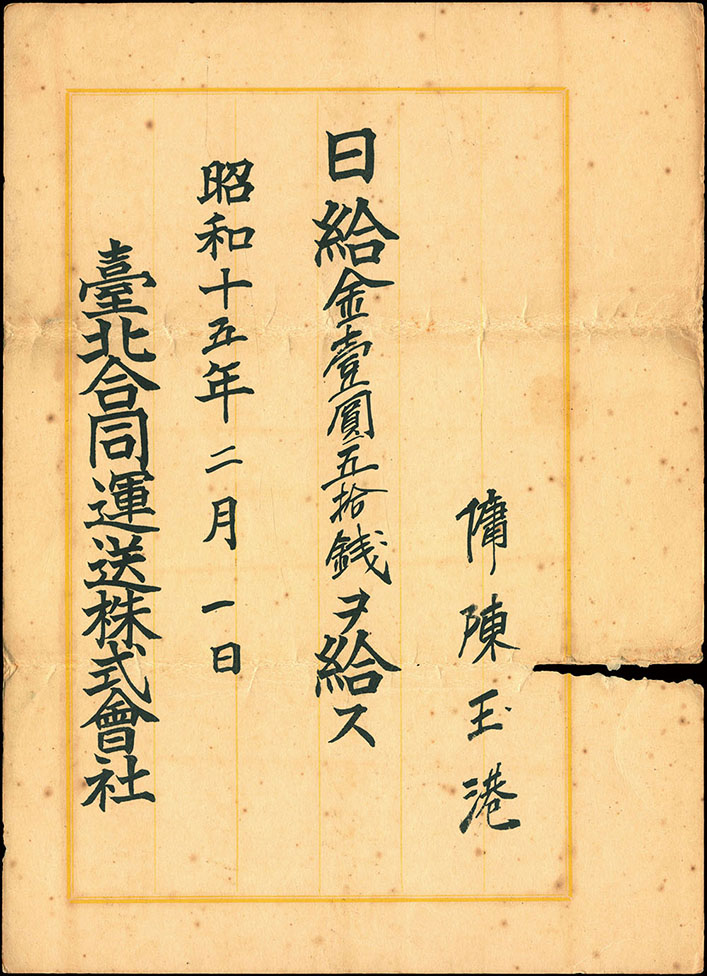 傭陳玉港
日給金壹圓五拾銭ヲ給ス
昭和十五年二月一日
臺北合同運送株式會社